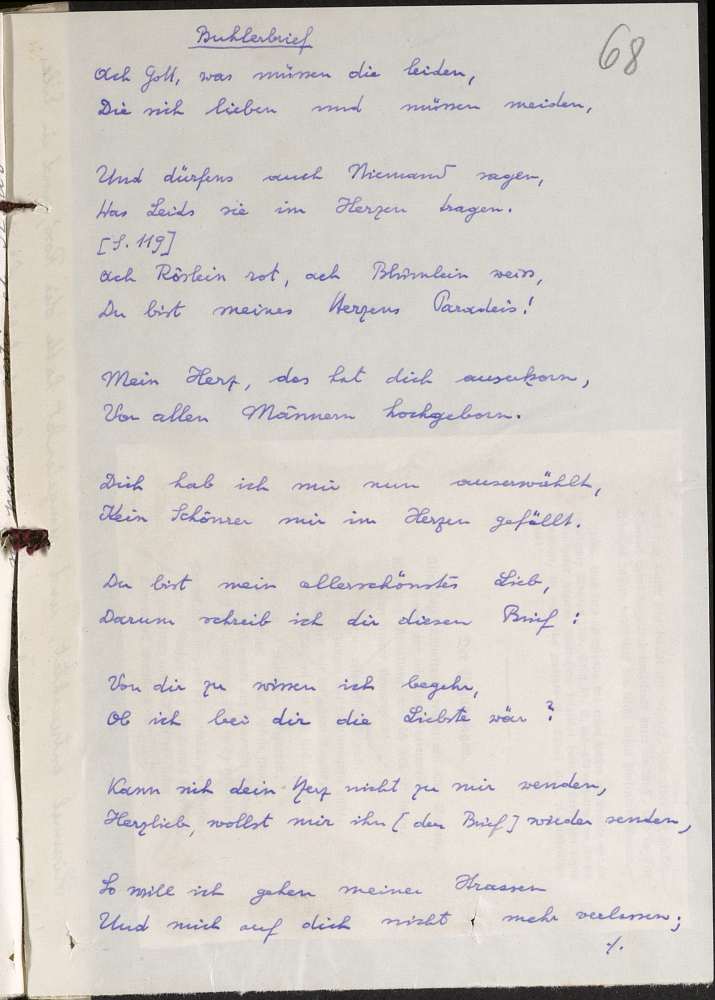 68
Buhlerbrief
Ach Gott, was müssen die leiden,
Die sich lieben und müssen meiden,
Und dürfens auch Niemand sagen,
Was Leids sie im Herzen tragen.
[S. 119]
Ach Röslein rot, ach Blümlein weiss,
Du bist meines Herzens Paradeis!
Mein Herz, das hat dich auserkorn,
Von allen Männern hochgeborn.
Dich hab ich mir nun auserwählt,
Kein Schönrer mir im Herzen gefällt.
Du bist mein allerschönstes Lieb,
Darum schreib ich dir diesen Brief:
Von dir zu wissen ich begehr,
Ob ich bei dir die Liebste wär?
Kann sich dein Herz nicht zu mir wenden,
Herzlieb, wollst mir ihn [den Brief] wieder senden,
So will ich gehen meiner Strassen
Und mich auf dich nicht mehr verlassen;
./.